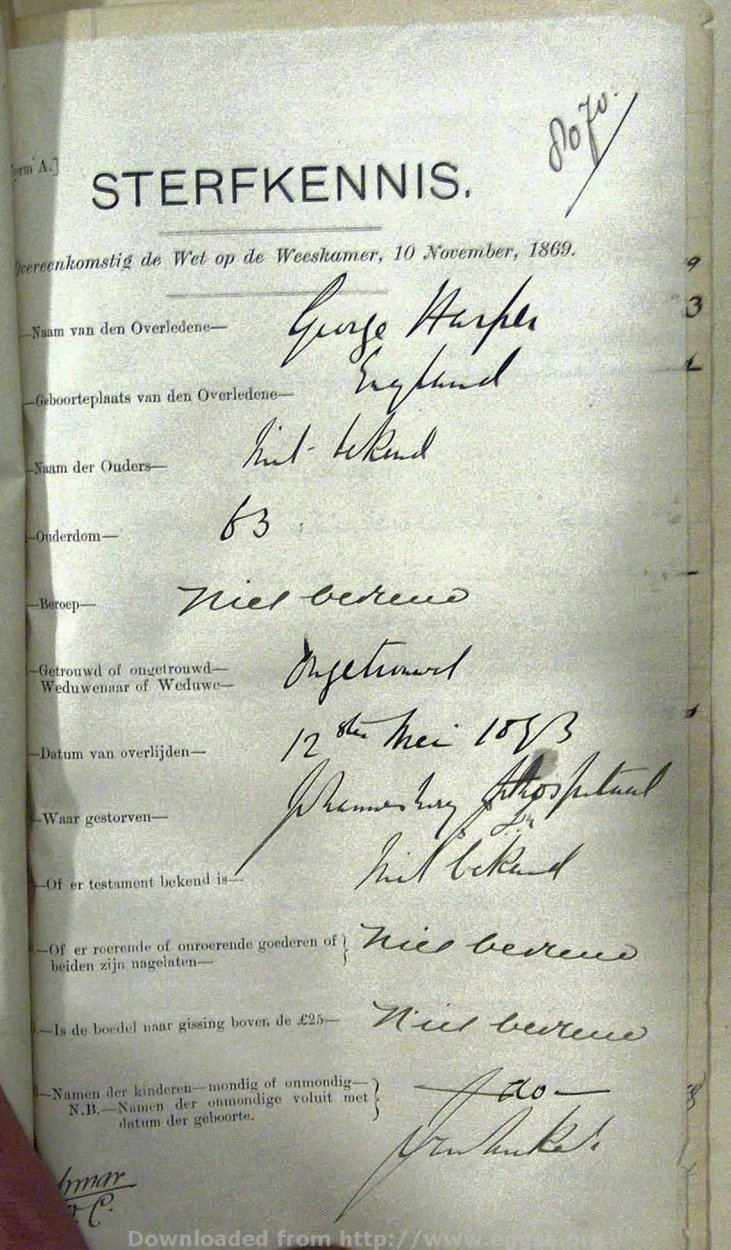 8070.
orm A.]
STERFKENNIS.
Overeenkomstig de Wet op de Weeskamer, 10 November, 1869.
—Naam van den Overledene— George Harper
—Geboorteplaats van den Overledene— England
—Naam der Ouders— Niet bekend
—Ouderdom— 63
—Beroep— Niet bekend
—Getrouwd of ongetrouwd— Ongetrouwd
Weduwenaar of Weduwe—
—Datum van overlijden— 12 den Mei 1893
—Waar gestorven— Johannesburg Hospitaal
—Of er testament bekend is— Niet bekend
—Of er roerende of onroerende goederen of } Niet bekend
beiden zijn nagelaten—
—Is de boedel naar gissing boven de £25— Niet bekend
—Namen der kinderen—mondig of onmondig— } — do —
N.B.—Namen der onmondige voluit met
datum der geboorte.
Downloaded from http://www.